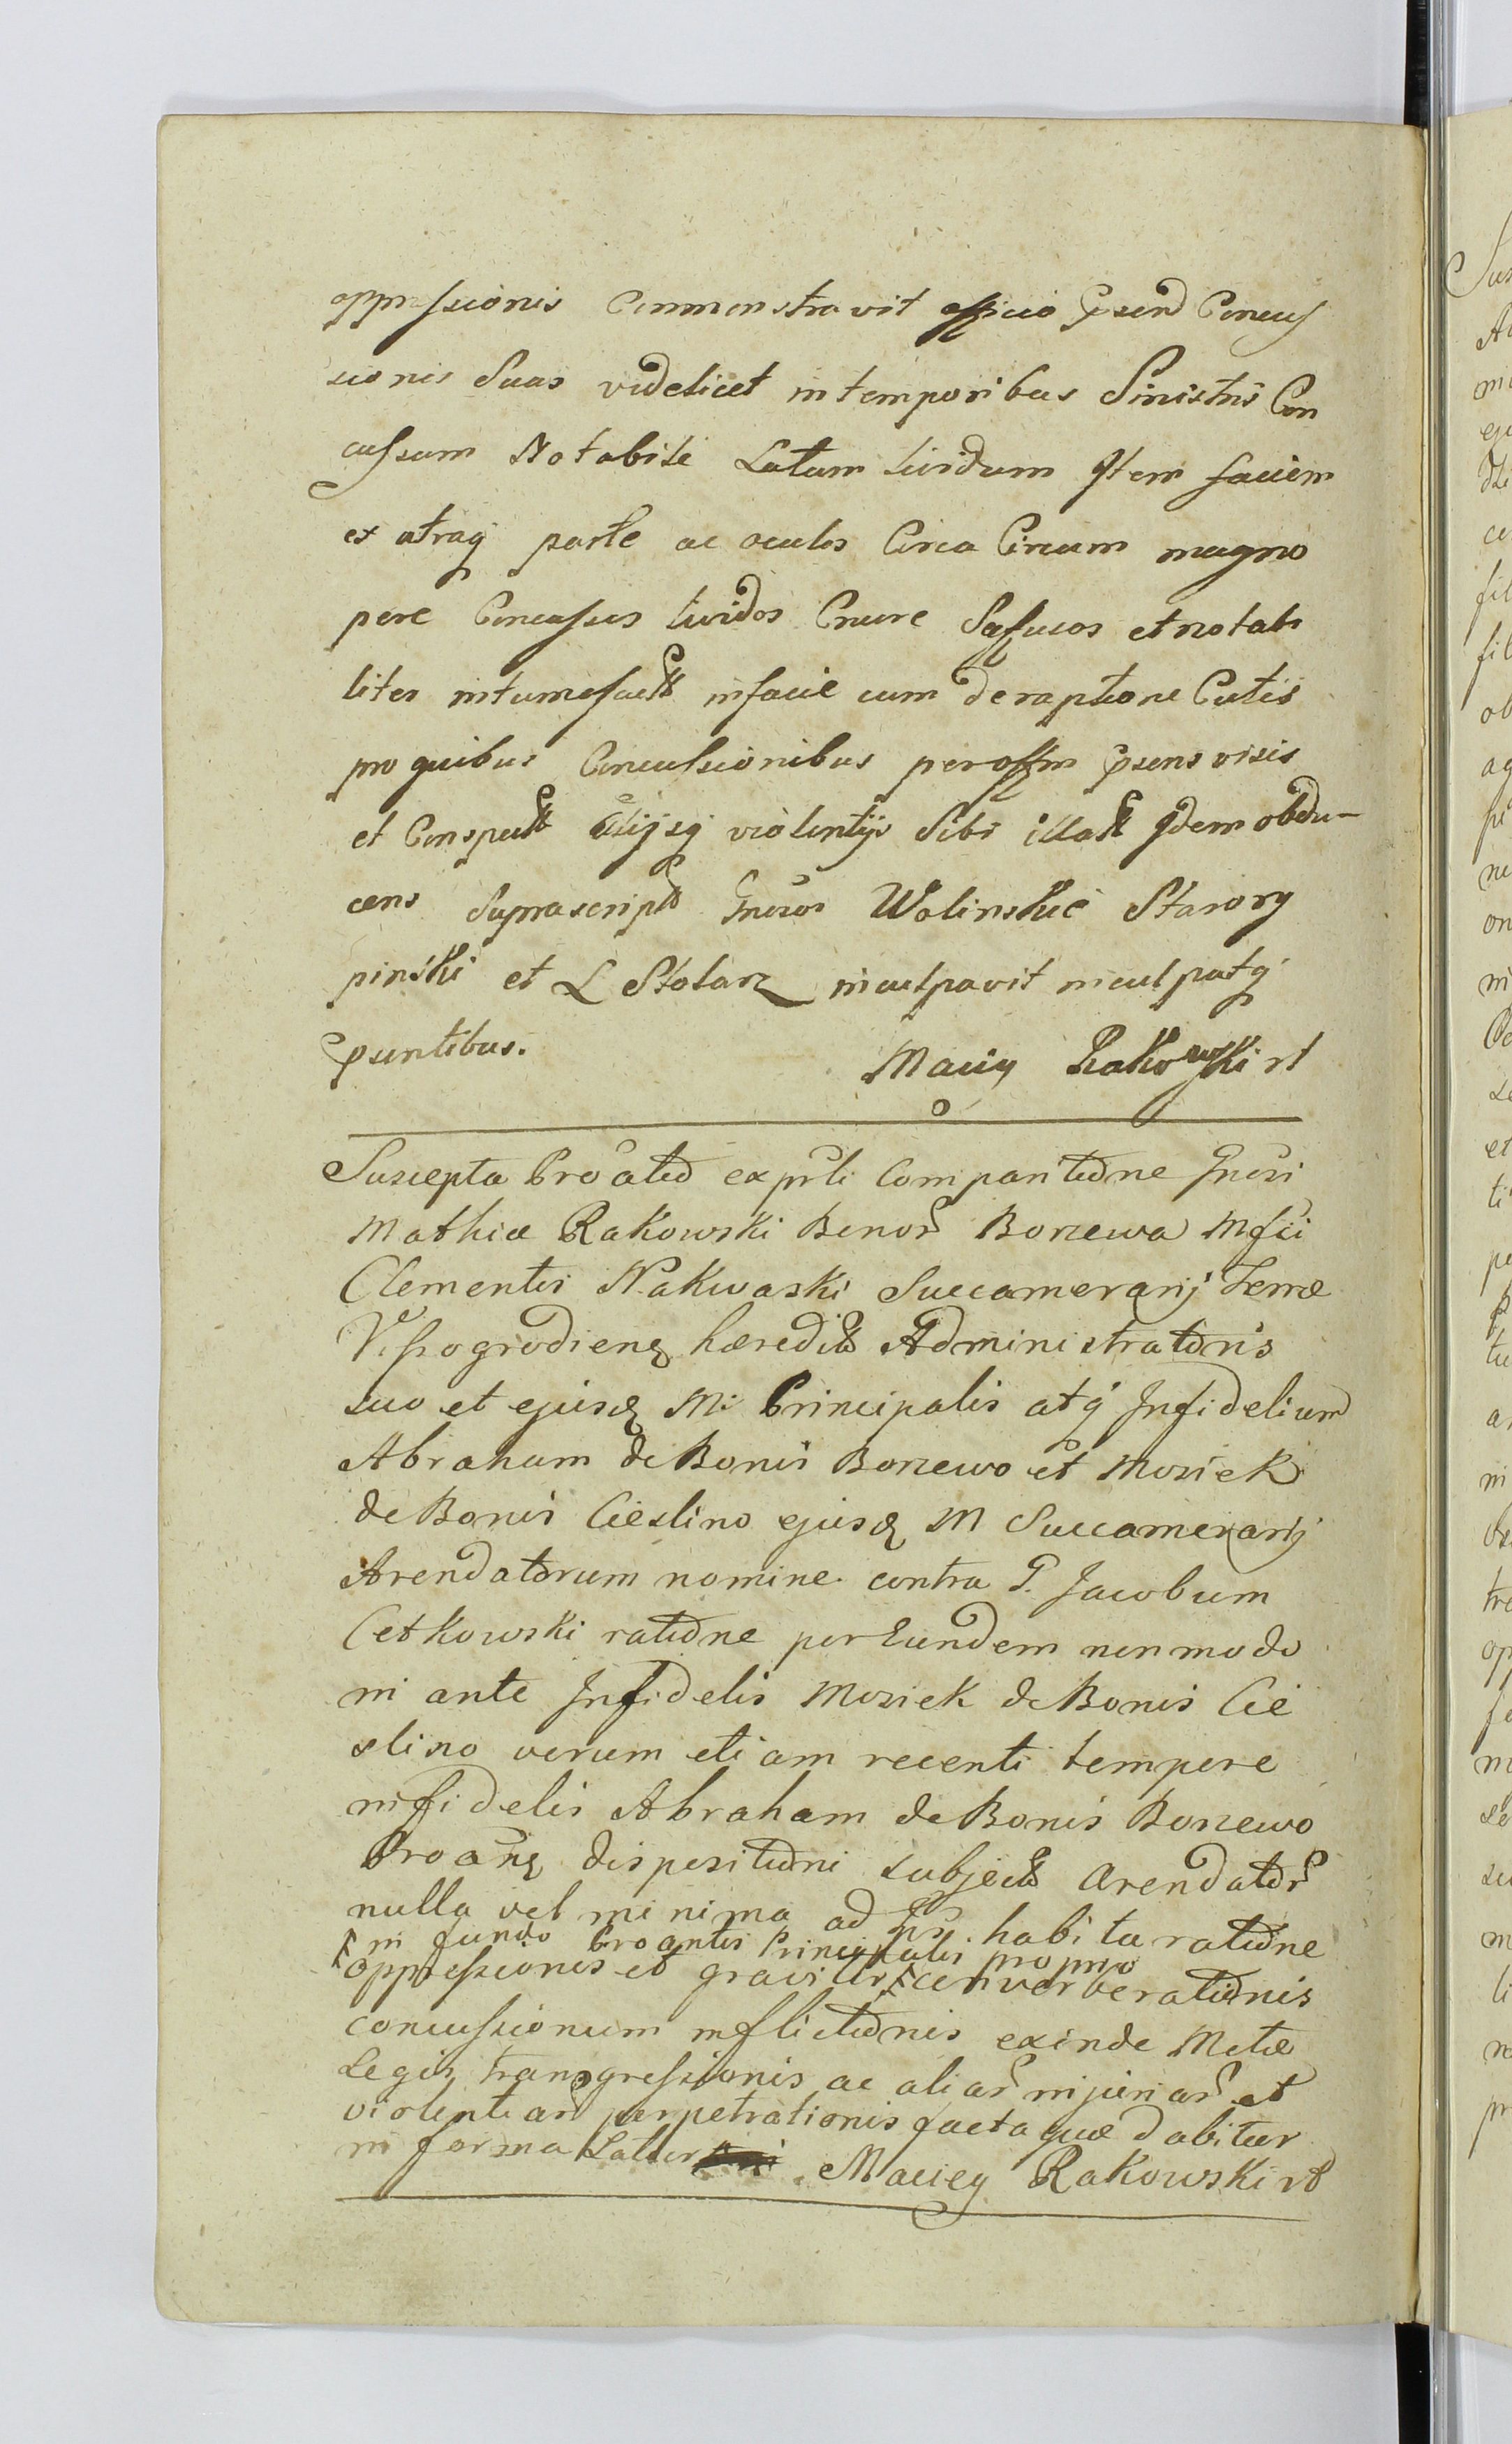 oppressionis Commonstravit officio Psend Concus
sionis Suas videlicet in temporibus Sinistris Con
cussum Notabile Latum lividum Item faciem
ex utraq parte ac oculos Circa Circum magno
pere Concussos lividos Cruore Suffusos et notabi
liter intumefactt in facie cum deraptione Cutis
pro quibus Concussionibus per offm Psens visis
et Conspectt alijsq violentijs Sibi illatt Idem obdu-
cens Suprascriptt Gnosos Wolinskie Starorz
pinski et L Stolarz inculpavit inculpatq
Psentibus.
Maciey Rakowski rt
Suscepta Protatio ex prti Comparitione Gnosi
Mathiæ Rakowski Bonor Borzewa Mfci
Clementis Nakwaski Succamerarij Terræ
Vissogrodiens hæredit Administratoris
suo et ejusd M. Principalis atq Infidelium
Abraham de Bonis Borzewo et Moziek
de Bonis Cieslino ejusd M Succamerarij
Arendatorum nomine contra G. Jacobum
Cetkowski ratione per Eundem non modo
in ante Infidelis Moziek de Bonis Cie
slino verum etiam recenti tempore
infidelis Abraham de Bonis Borzewo
Protans dispositioni subject Arendator
nulla vel minima ad hoc habita ratione
in fundo Protantis Principalis proprio
oppressionis et gravis converberationis
concussionum inflictionis exinde Metæ
Legis transgressionis ac aliar injuriar et
violentiar perpetrationis facta quæ dabitur
in forma Latior
Maciey Rakowski rt